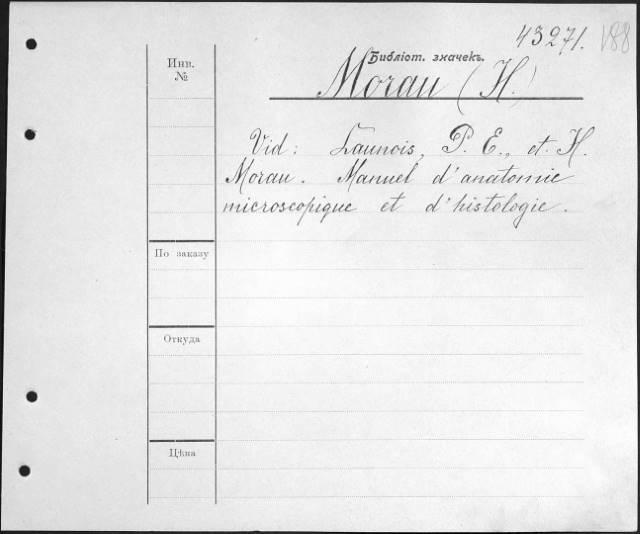 43271. 188
Библіот. значекъ.
Инв.
№
Morau (H.)
Vid: Launois, P. E., et H.
Morau. Manuel d'anatomie
microscopique et d'histologie.
По заказу
Откуда
Цѣна